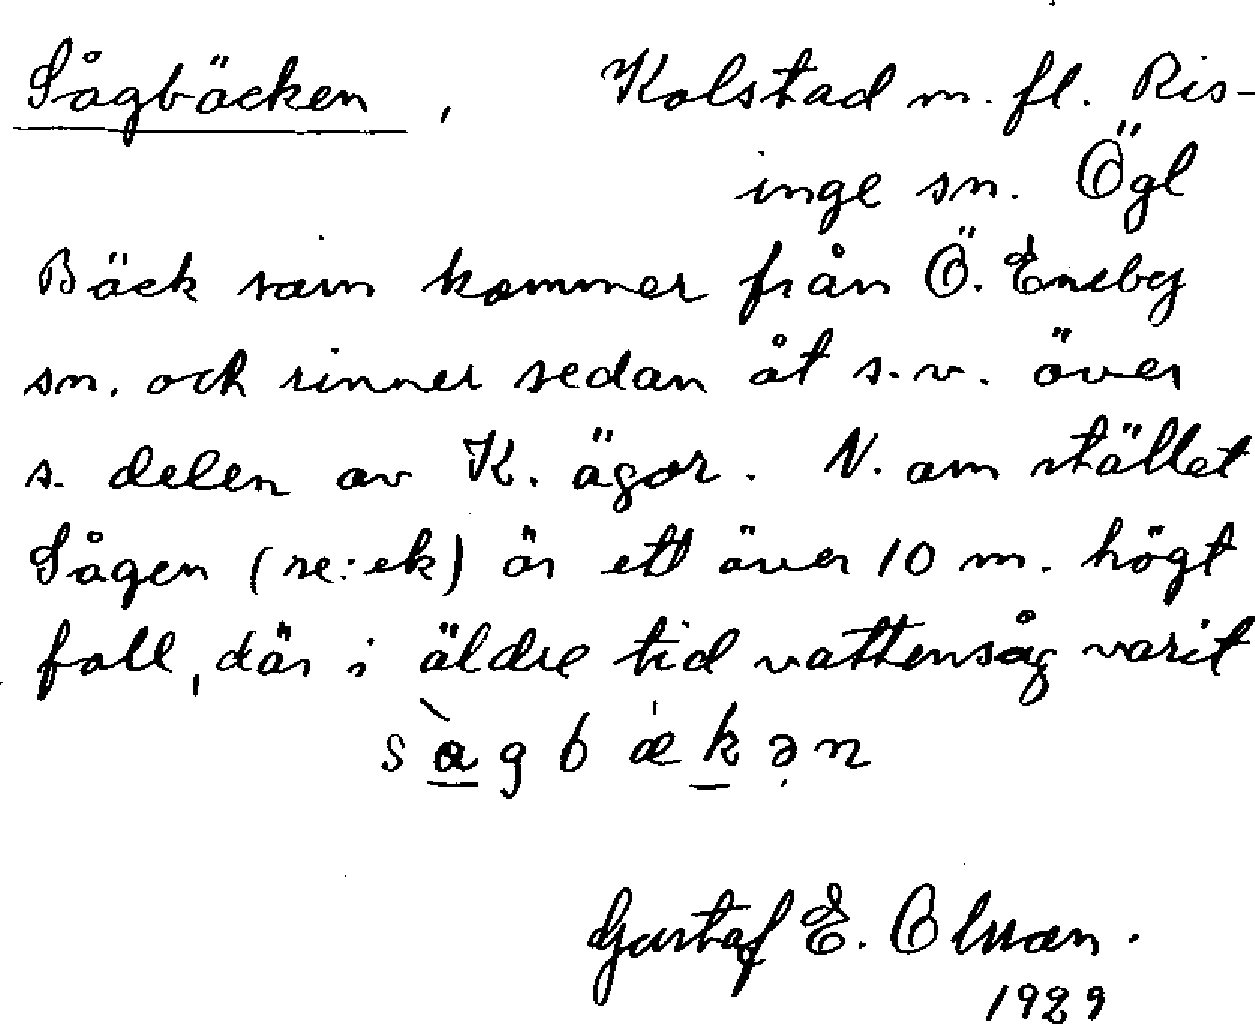 Sågbäcken, Kolstad m. fl. Ris-
inge sn. Ögl
Bäck som kommer från Ö. Eneby
sn. och rinner sedan åt s.v. över
s. delen av K. ägor. N. om stället
Sågen (re:ek) är ett över 10 m. högt
fall, där i äldre tid vattensåg varit
sàgbækən
Gustaf E. Olsson.
1929